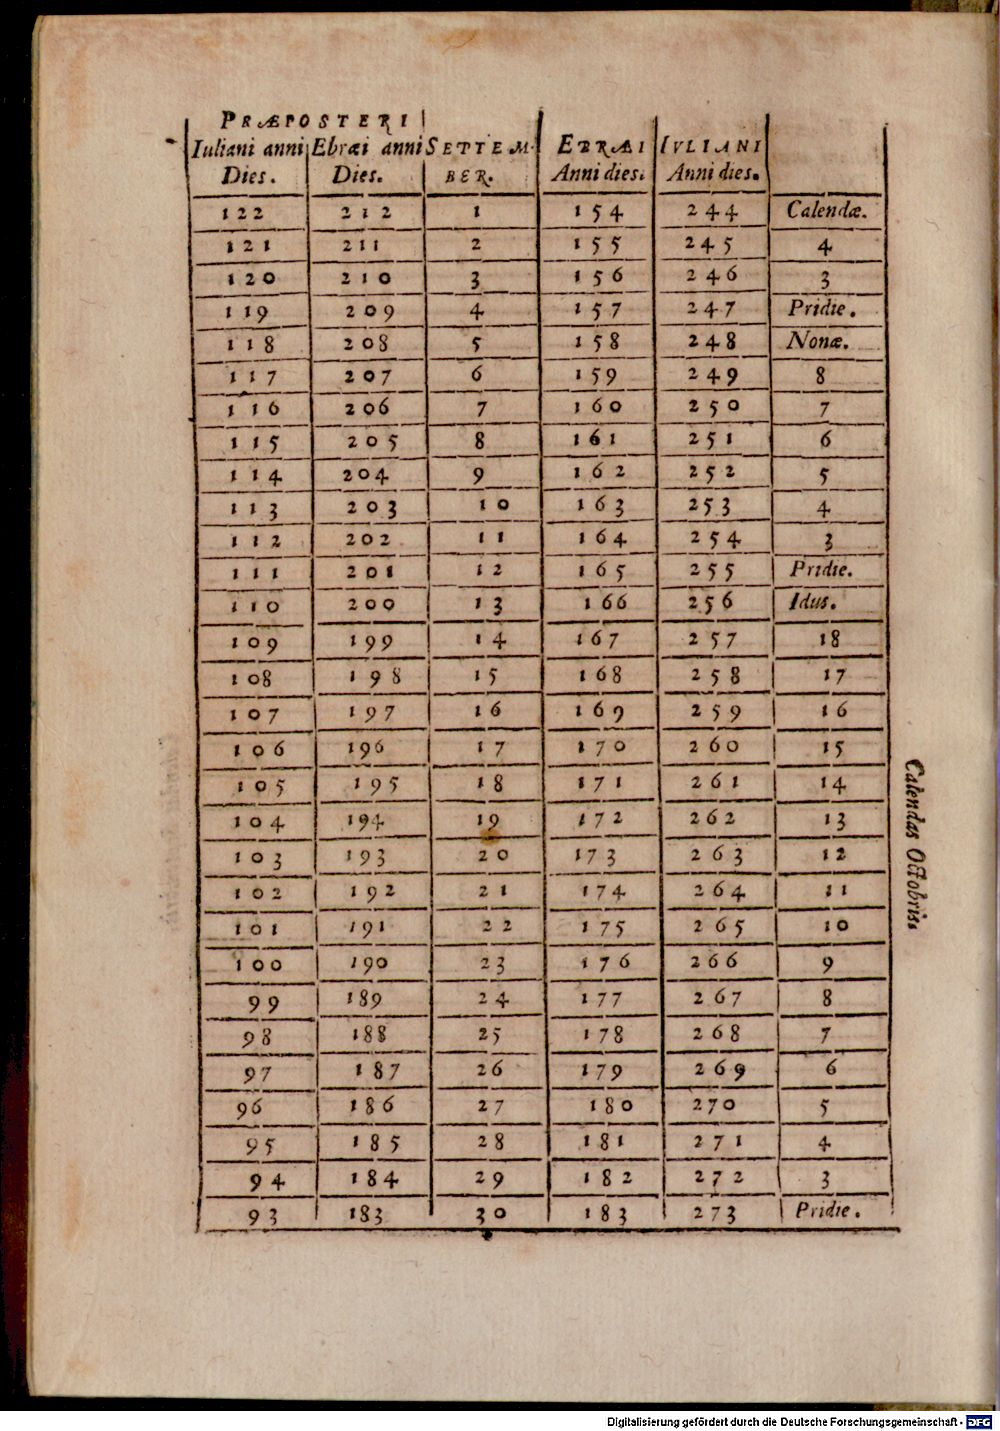 PRÆPOSTERI
Iuliani anni Ebræi anni SETTEM- EBRÆI IVLIANI
Dies. Dies. BER. Anni dies. Anni dies.
122 212 1 154 244 Calendæ.
121 211 2 155 245 4
120 210 3 156 246 3
119 209 4 157 247 Pridie.
118 208 5 158 248 Nonæ.
117 207 6 159 249 8
116 206 7 160 250 7
115 205 8 161 251 6
114 204 9 162 252 5
113 203 10 163 253 4
112 202 11 164 254 3
111 201 12 165 255 Pridie.
110 200 13 166 256 Idus.
109 199 14 167 257 18
108 198 15 168 258 17
107 197 16 169 259 16
106 196 17 170 260 15
105 195 18 171 261 14
104 194 19 172 262 13
103 193 20 173 263 12
102 192 21 174 264 11
101 191 22 175 265 10
100 190 23 176 266 9
99 189 24 177 267 8
98 188 25 178 268 7
97 187 26 179 269 6
96 186 27 180 270 5
95 185 28 181 271 4
94 184 29 182 272 3
93 183 30 183 273 Pridie.
Calendas Octobris.
Digitalisierung gefördert durch die Deutsche Forschungsgemeinschaft - DFG